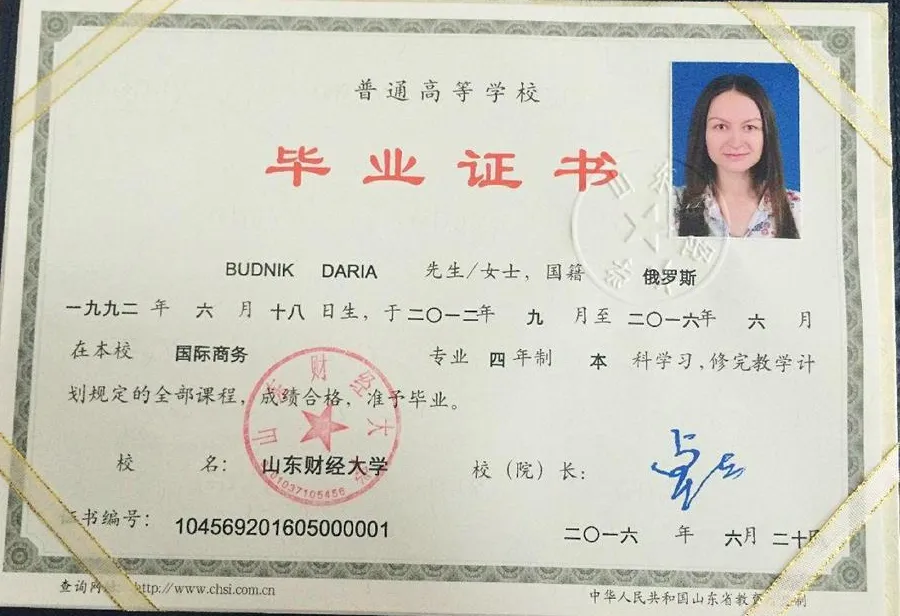 普通高等学校
毕业证书
BUDNIK DARIA 先生/女士，国籍 俄罗斯
一九九二 年 六 月 十八 日生，于二〇一二年 九 月至 二〇一六年 六 月
在本校 国际商务 专业 四 年制 本 科学习，修完教学计
划规定的全部课程，成绩合格，准予毕业。
校 名： 山东财经大学 校（院）长：
山东财经大学
证书编号： 104569201605000001 二〇一六 年 六月 二十日
查询网址：http://www.chsi.com.cn 中华人民共和国山东省教育